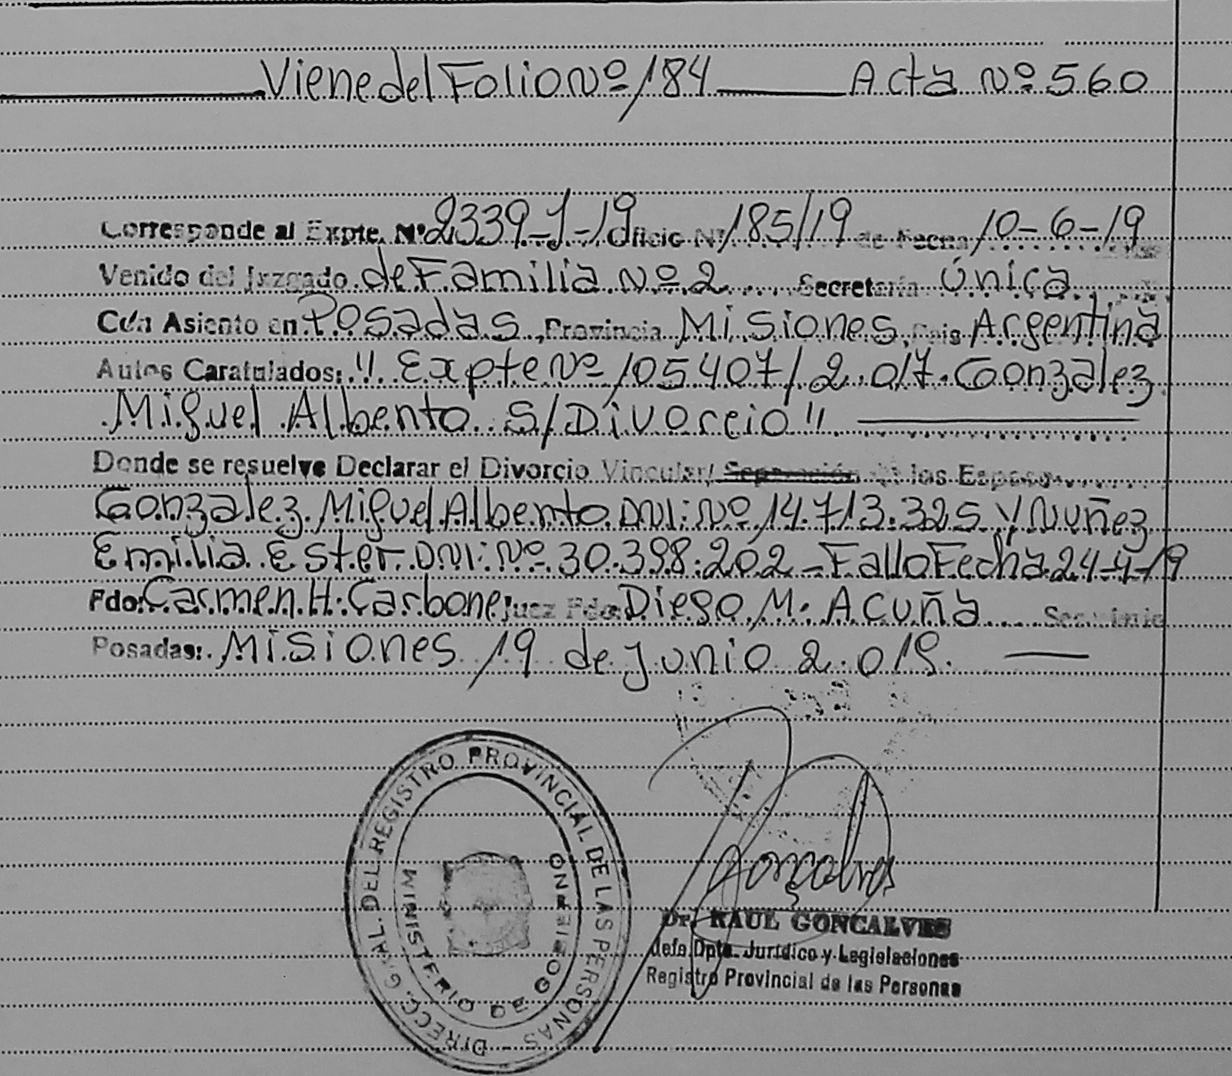 Viene del Folio Nº 184 Acta Nº 560
Corresponde al Expte. Nº 2339-J-19 Oficio Nº 185/19 de Fecha 10-6-19
Venido del Juzgado de Familia Nº 2 Secretaria Única
Con Asiento en Posadas Provincia Misiones Pais Argentina
Autos Caratulados: "Expte Nº 105407/2.017. Gonzalez
Miguel Albento S/Divorcio"
Donde se resuelve Declarar el Divorcio Vincular/ Separación de los Esposos
Gonzalez Miguel Albento DNI: Nº 14.713.325 Y Nuñez
Emilia Ester DNI: Nº 30.398.202 - Fallo Fecha 24-4-19
Fdo: Carmen H. Carbone Juez Fdo: Diego M. Acuña
Posadas: Misiones 19 de Junio 2.019.
DIRECC. GRAL. DEL REGISTRO PROVINCIAL DE LAS PERSONAS
MINISTERIO DE GOBIERNO
Goncalves
Dr. RAUL GONCALVES
Jefe Dpto. Jurídico y Legislaciones
Registro Provincial de las Personas